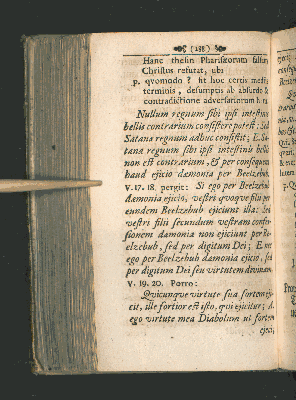 (188)
Hanc thesin Pharisæorum falsam
Christus refutat, ubi
p. qvomodo? fit hoc certis medii
terminis, desumptis ab absurdo &
contradictione adversariorum
Nullum regnum sibi ipsi intestino
bellis contrarium consistere potest: Sed
Satanæ regnum adhuc consistit; E. Sa-
tanæ regnum sibi ipsi intestinis bellis
non est contrarium, & per conseqvens
haud ejicio dæmonia per Beelzebub
V. 17. 18. pergit: Si ego per Beelzebub
dæmonia ejicio, vestri qvoqve filii per
eundem Beelzebub ejiciunt illa: Sed
vestri filii secundum vestram confes-
sionem dæmonia non ejiciunt per Be-
elzebub, sed per digitum Dei; E. nec
ego per Beelzebub dæmonia ejicio, sed
per digitum Dei seu virtutem divinam
V. 19. 20. Porro:
Qvicunqve virtute sua fortem eji-
cit, ille fortior est isto, qui ejicitur; At
ego virtute mea Diabolum ut fortem
ejeci,